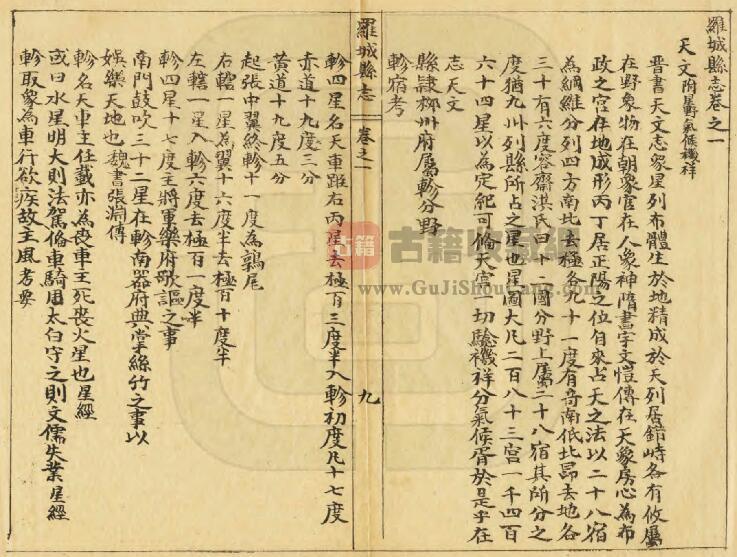 羅城縣志卷之一
天文附晷氣候禨祥
晋書天文志衆星列布體生於地精成於天列居錯峙各有攸屬
在野象物在朝象官在人象神隋書宇文愷傳在天象房心為布
政之宮在地成形丙丁居正陽之位自來占天之法以二十八宿
為綱維分列四方南北去極各九十一度有奇南低北昂去地各
三十有六度容齋洪氏曰十二國分野上屬二十八宿其所分之
度猶九州列縣所占之星也星圖大凡二百八十三宮一千四百
六十四星以為定紀可偹天官一切驗禨祥分氣候胥於是乎在
志天文
縣隸柳州府屬軫分野
軫宿考
羅城縣志
卷之一
九
軫四星名天車距右丙星去極百三度半入軫初度凡十七度
赤道十九度三分
黄道十九度五分
起張中翼終軫十一度為鶉尾
右轄一星為翼十六度半去極百十度半
左轄一星入軫六度去極百一度半
軫四星十七度主將軍樂府歌謳之事
南門鼓吹三十二星在軫南器府典掌絲竹之事以
娛樂天地也魏書張淵傳
軫名天車主任載亦為喪車主死喪火星也星經
或曰水星明大則法駕偹車騎用太白守之則文儒失業星經
軫取象為車行欲疾故主風考要
古籍收藏網
www.GuJiShouCang.com
古籍